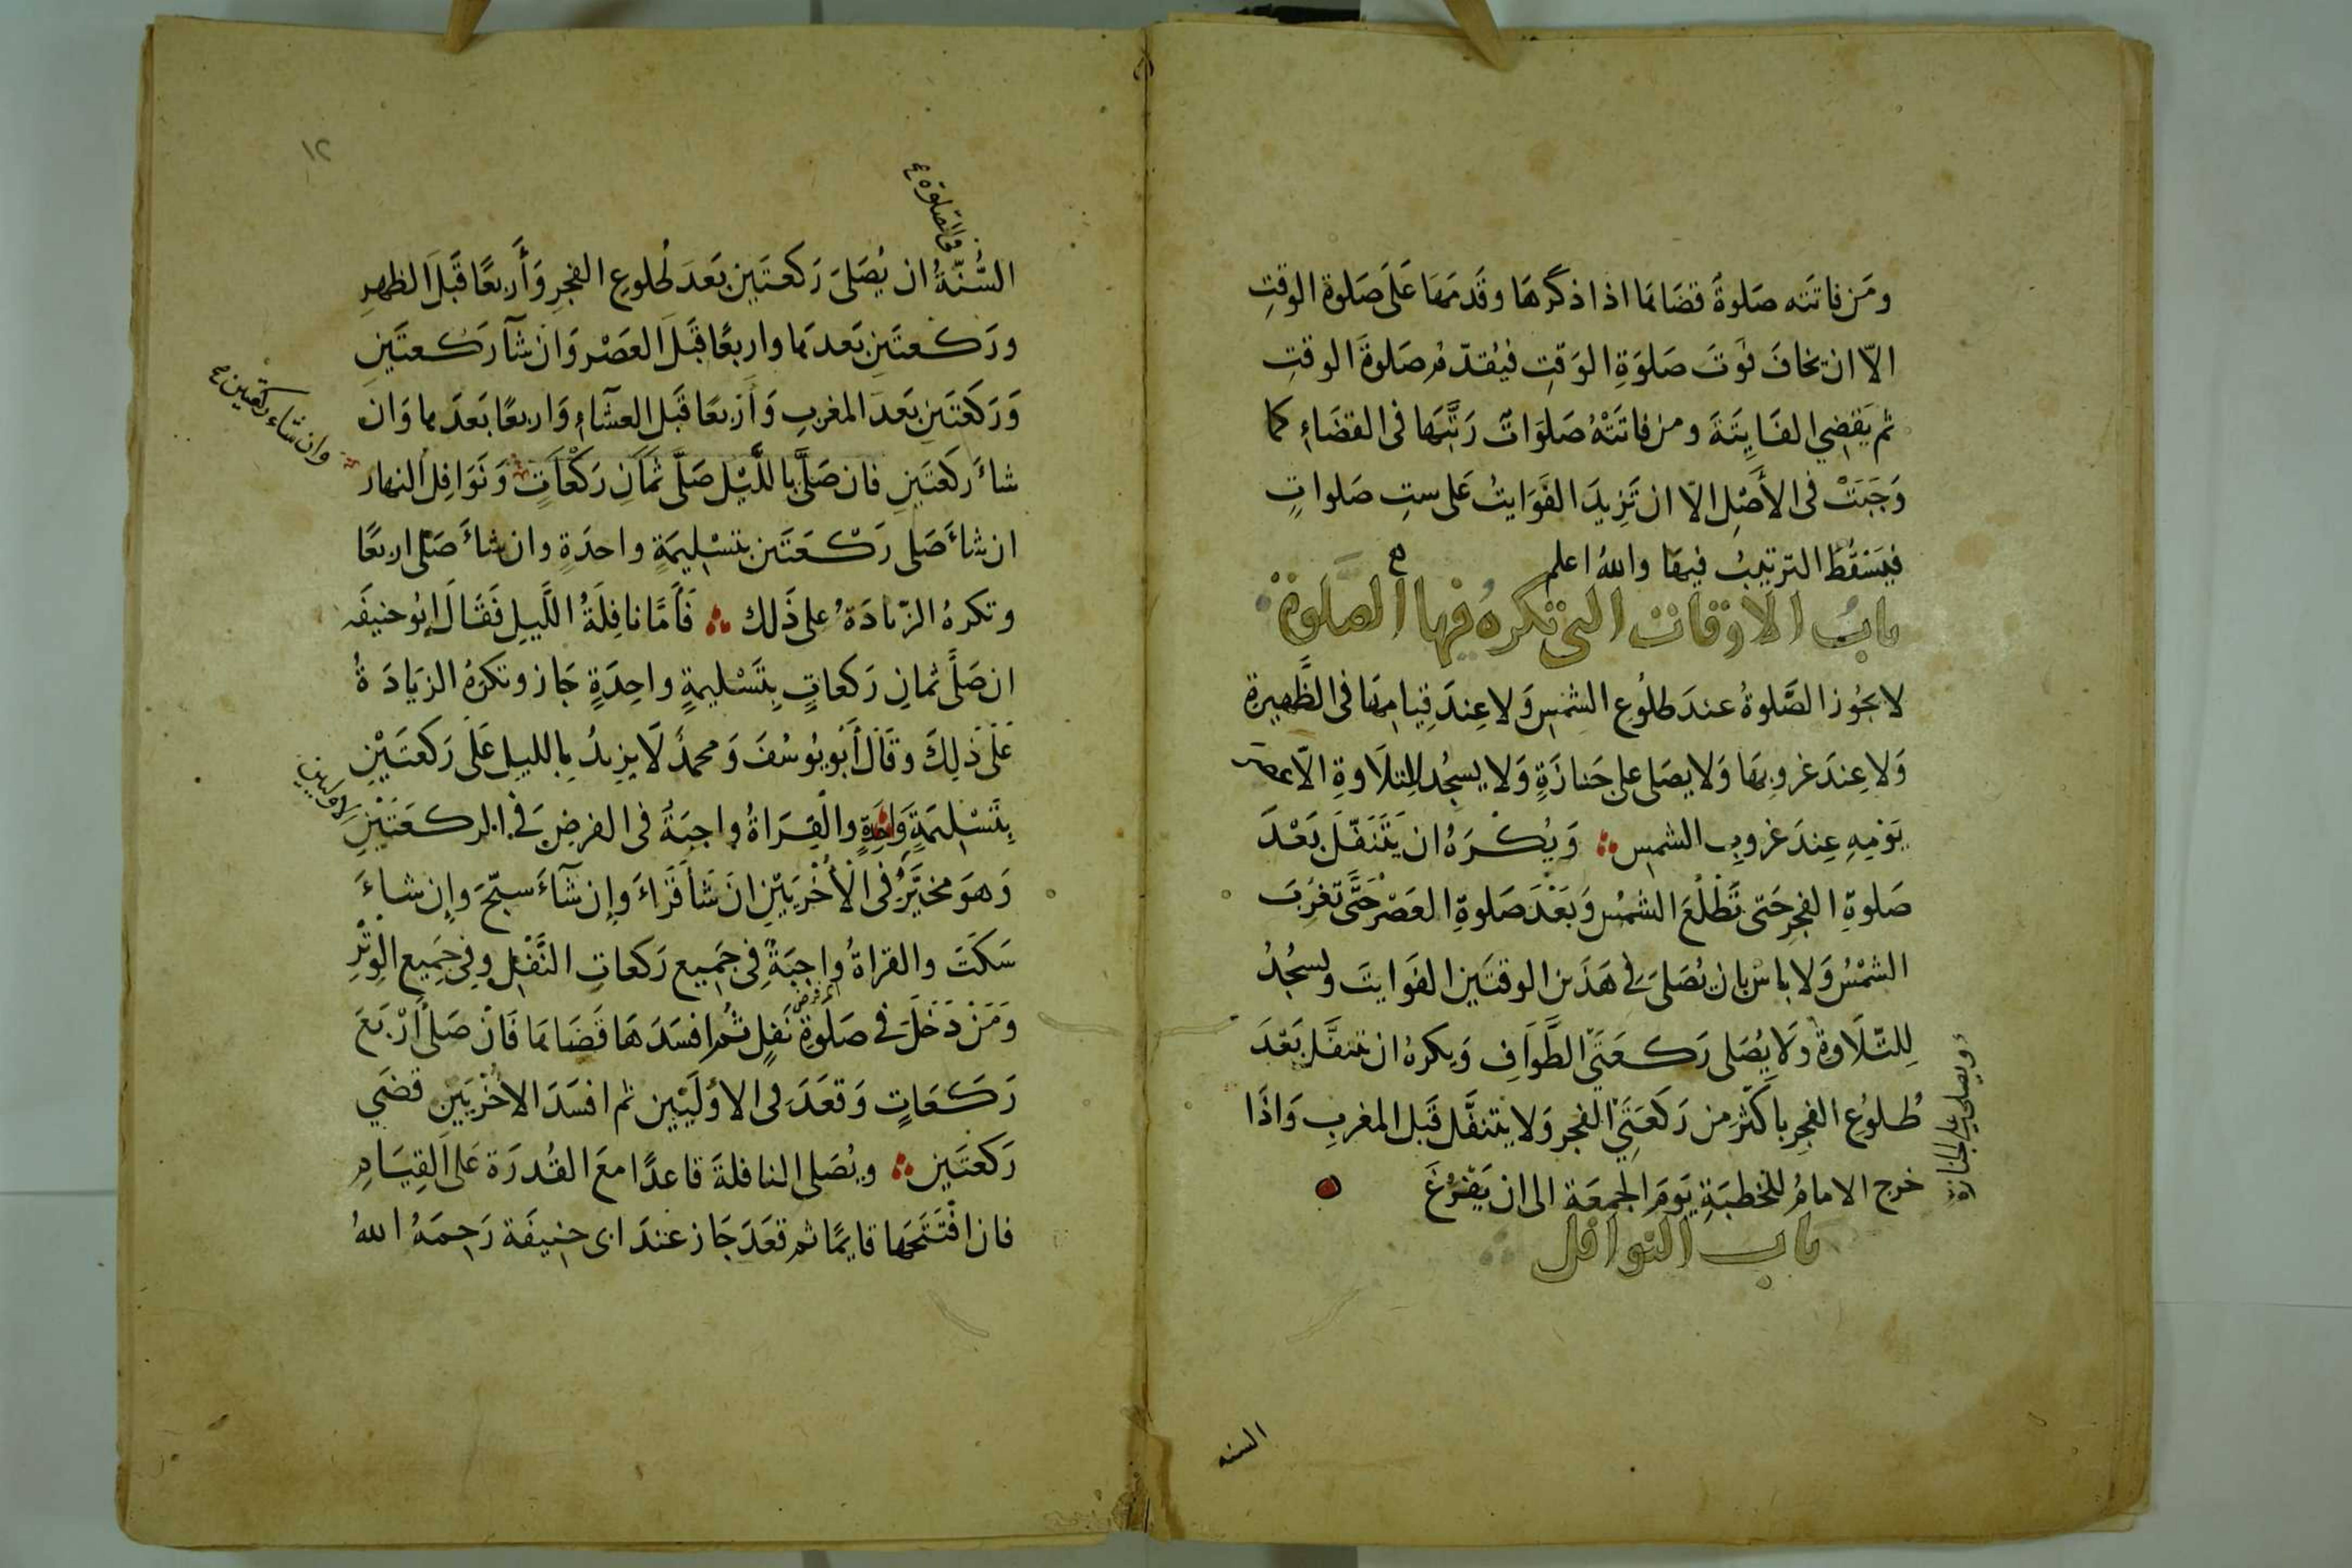 ومن فاتته صلوة قضاها اذا ذكرها وقدمها على صلوة الوقت
الا ان يخاف فوت صلوة الوقت فيقدم صلوة الوقت
ثم يقضي الفايتة ومن فاتته صلوات رتبها في القضاء كما
وجبت في الأصل الا ان تزيد الفوايت على ست صلوات
فيسقط الترتيب فيها والله اعلم
باب الاوقات التي تكره فيها الصلوة
لا يجوز الصلوة عند طلوع الشمس ولا عند قيامها في الظهيرة
ولا عند غروبها ولا يصلى على جنازة ولا يسجد للتلاوة الا عصر
يومه عند غروب الشمس ويكره ان يتنفل بعد
صلوة الفجر حتى تطلع الشمس وبعد صلوة العصر حتى تغرب
الشمس ولا باس بان يصلى في هذين الوقتين الفوايت ويسجد
للتلاوة ولا يصلى ركعتي الطواف ويكره ان يتنفل بعد
ويصلي على الجنازة
طلوع الفجر باكثر من ركعتي الفجر ولا يتنفل قبل المغرب واذا
خرج الامام للخطبة يوم الجمعة الى ان يفرغ
باب النوافل
السنه
١٢
في الصلوة
السنة ان يصلى ركعتين بعد طلوع الفجر وأربعا قبل الظهر
وركعتين بعدها واربعا قبل العصر وان شآ ركعتين
وركعتين بعد المغرب وأربعا قبل العشاء واربعا بعدها وان
وان شاء ركعتين
شاء ركعتين فان صلى بالليل صلى ثمان ركعات ونوافل النهار
ان شاء صلى ركعتين بتسليمة واحدة وان شاء صلى اربعا
وتكره الزيادة على ذلك فأما نافلة الليل فقال ابو حنيفه
ان صلى ثمان ركعات بتسليمة واحدة جاز وتكره الزيادة
على ذلك وقال أبو يوسف ومحمد لا يزيد بالليل على ركعتين
بتسليمة واحدة والقراة واجبة في الفرض في الركعتين
الاوليين
وهو مخير في الأخريين ان شأ قراء وإن شآء سبح وإن شاء
سكت والقراة واجبة في جميع ركعات النفل وفي جميع الوتر
ومن دخل في صلوة نفل ثم افسدها قضاها فان صلى أربع
ركعات وقعد في الاوليين ثم افسد الاخريين قضي
ركعتين ويصلى النافلة قاعدا مع القدرة على القيام
فان افتتحها قايما ثم قعد جاز عند ابى حنيفة رحمه الله